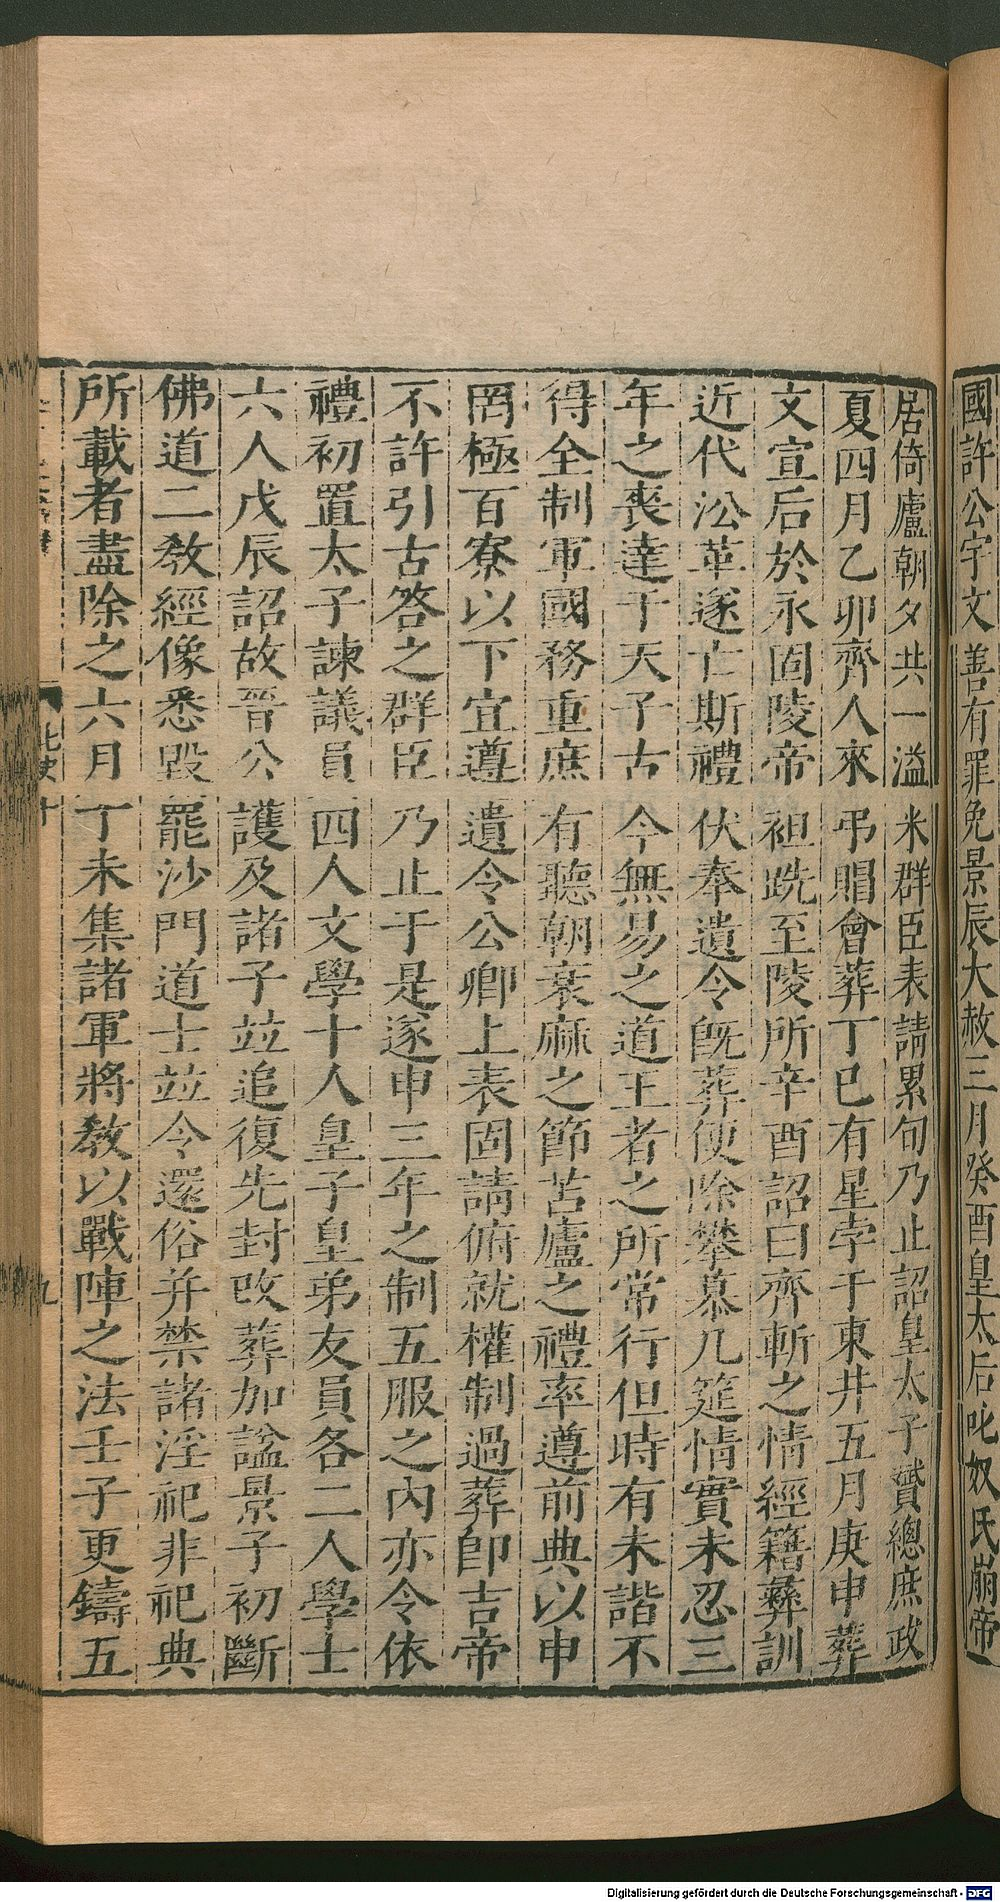 國許公宇文善有罪免景辰大赦三月癸酉皇太后叱奴氏崩帝
居倚廬朝夕共一溢米群臣表請累旬乃止詔皇太子贇總庶政
夏四月乙卯齊人來弔賵會葬丁巳有星孛于東井五月庚申葬
文宣后於永固陵帝袒跣至陵所辛酉詔曰齊斬之情經籍彝訓
近代沿革遂亡斯禮伏奉遺令旣葬便除攀慕几筵情實未忍三
年之喪達于天子古今無易之道王者之所常行但時有未諧不
得全制軍國務重庶有聽朝衰麻之節苫廬之禮率遵前典以申
罔極百寮以下宜遵遺令公卿上表固請俯就權制過葬卽吉帝
不許引古答之群臣乃止于是遂申三年之制五服之內亦令依
禮初置太子諫議員四人文學十人皇子皇弟友員各二人學士
六人戊辰詔故晉公護及諸子竝追復先封改葬加謚景子初斷
佛道二敎經像悉毀罷沙門道士竝令還俗并禁諸淫祀非祀典
所載者盡除之六月丁未集諸軍將敎以戰陣之法壬子更鑄五
北史十
九
Digitalisierung gefördert durch die Deutsche Forschungsgemeinschaft - DFG